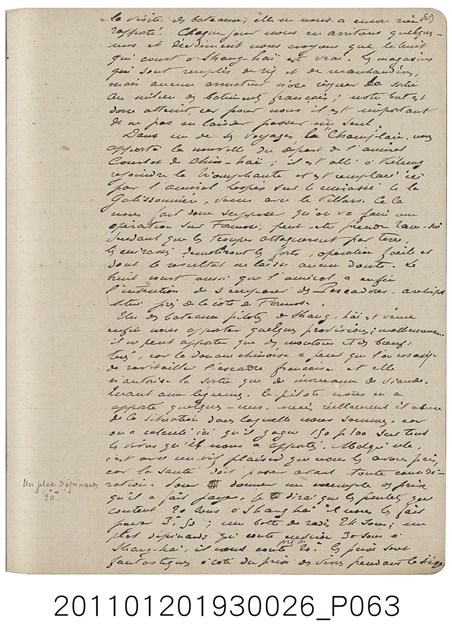 la visite des bateaux, elle ne nous a encore rien
rapporté. Chaque jour nous en arrêtons quelques-
uns et décidément nous croyons que le bruit
qui court à Shang-haï est vrai. Les magasins
qui sont remplis de riz et de marchandises,
mais aucun armateur n'ose risquer la sortie
au milieu des bâtiments français; notre but est
donc atteint, car pour nous il est important
de ne pas en laisser passer un seul.
Dans un de ses voyages le Champlain nous
apporte la nouvelle du départ de l'amiral
Courbet de Chin-haï; il est allé à Kelung
rejoindre la Triomphante et est remplacé ici
par l'amiral Lespès sur le cuirassé le La
Galissonnière, venu avec le Villars. Cela
nous fait donc supposer qu'on va faire une
opération sur Formose, peut être prendre Tam-sui
pendant que les troupes attaqueront par terre,
les cuirassés démoliront les forts, opération facile et
dont le résultat ne laisse aucun doute. Le
bruit court aussi que l'amiral a enfin
l'intention de s'emparer des Pescadores, archipel
situé près de la côte de Formose.
Un des bateaux pilotes de Shang-haï est venu
enfin nous apporter quelques provisions; malheureusement
il ne peut apporter que des moutons et des bœufs
tués, car la douane chinoise a peur que l'on essaye
de ravitailler l'escadre française et elle
n'autorise la sortie que de morceaux de viande.
Quant aux légumes, le pilote nous en a
apporté quelques-uns, mais réellement il abuse
de la situation dans laquelle nous sommes, car
on a calculé ici qu'il gagne 150 p 100 sur tous
les vivres qu'il nous a apportés. Malgré cela
c'est avec un vif plaisir que nous les avons pris,
car la santé doit passer avant toute considé-
ration. Pour donner un exemple des prix
qu'il a fait payer, je dirai que les poulets qui
coutent 20 sous à Shanghaï il nous les fait
payer 3f.50; une botte de radis 24 sous; un
plat d'épinards qui coute environ 30 sous à
Shanghaï, il nous coute 20f. Ces prix sont
fantastiques à côté du prix des vivres pendant le siège
Un plat d'épinards
20f
201101201930026_P063